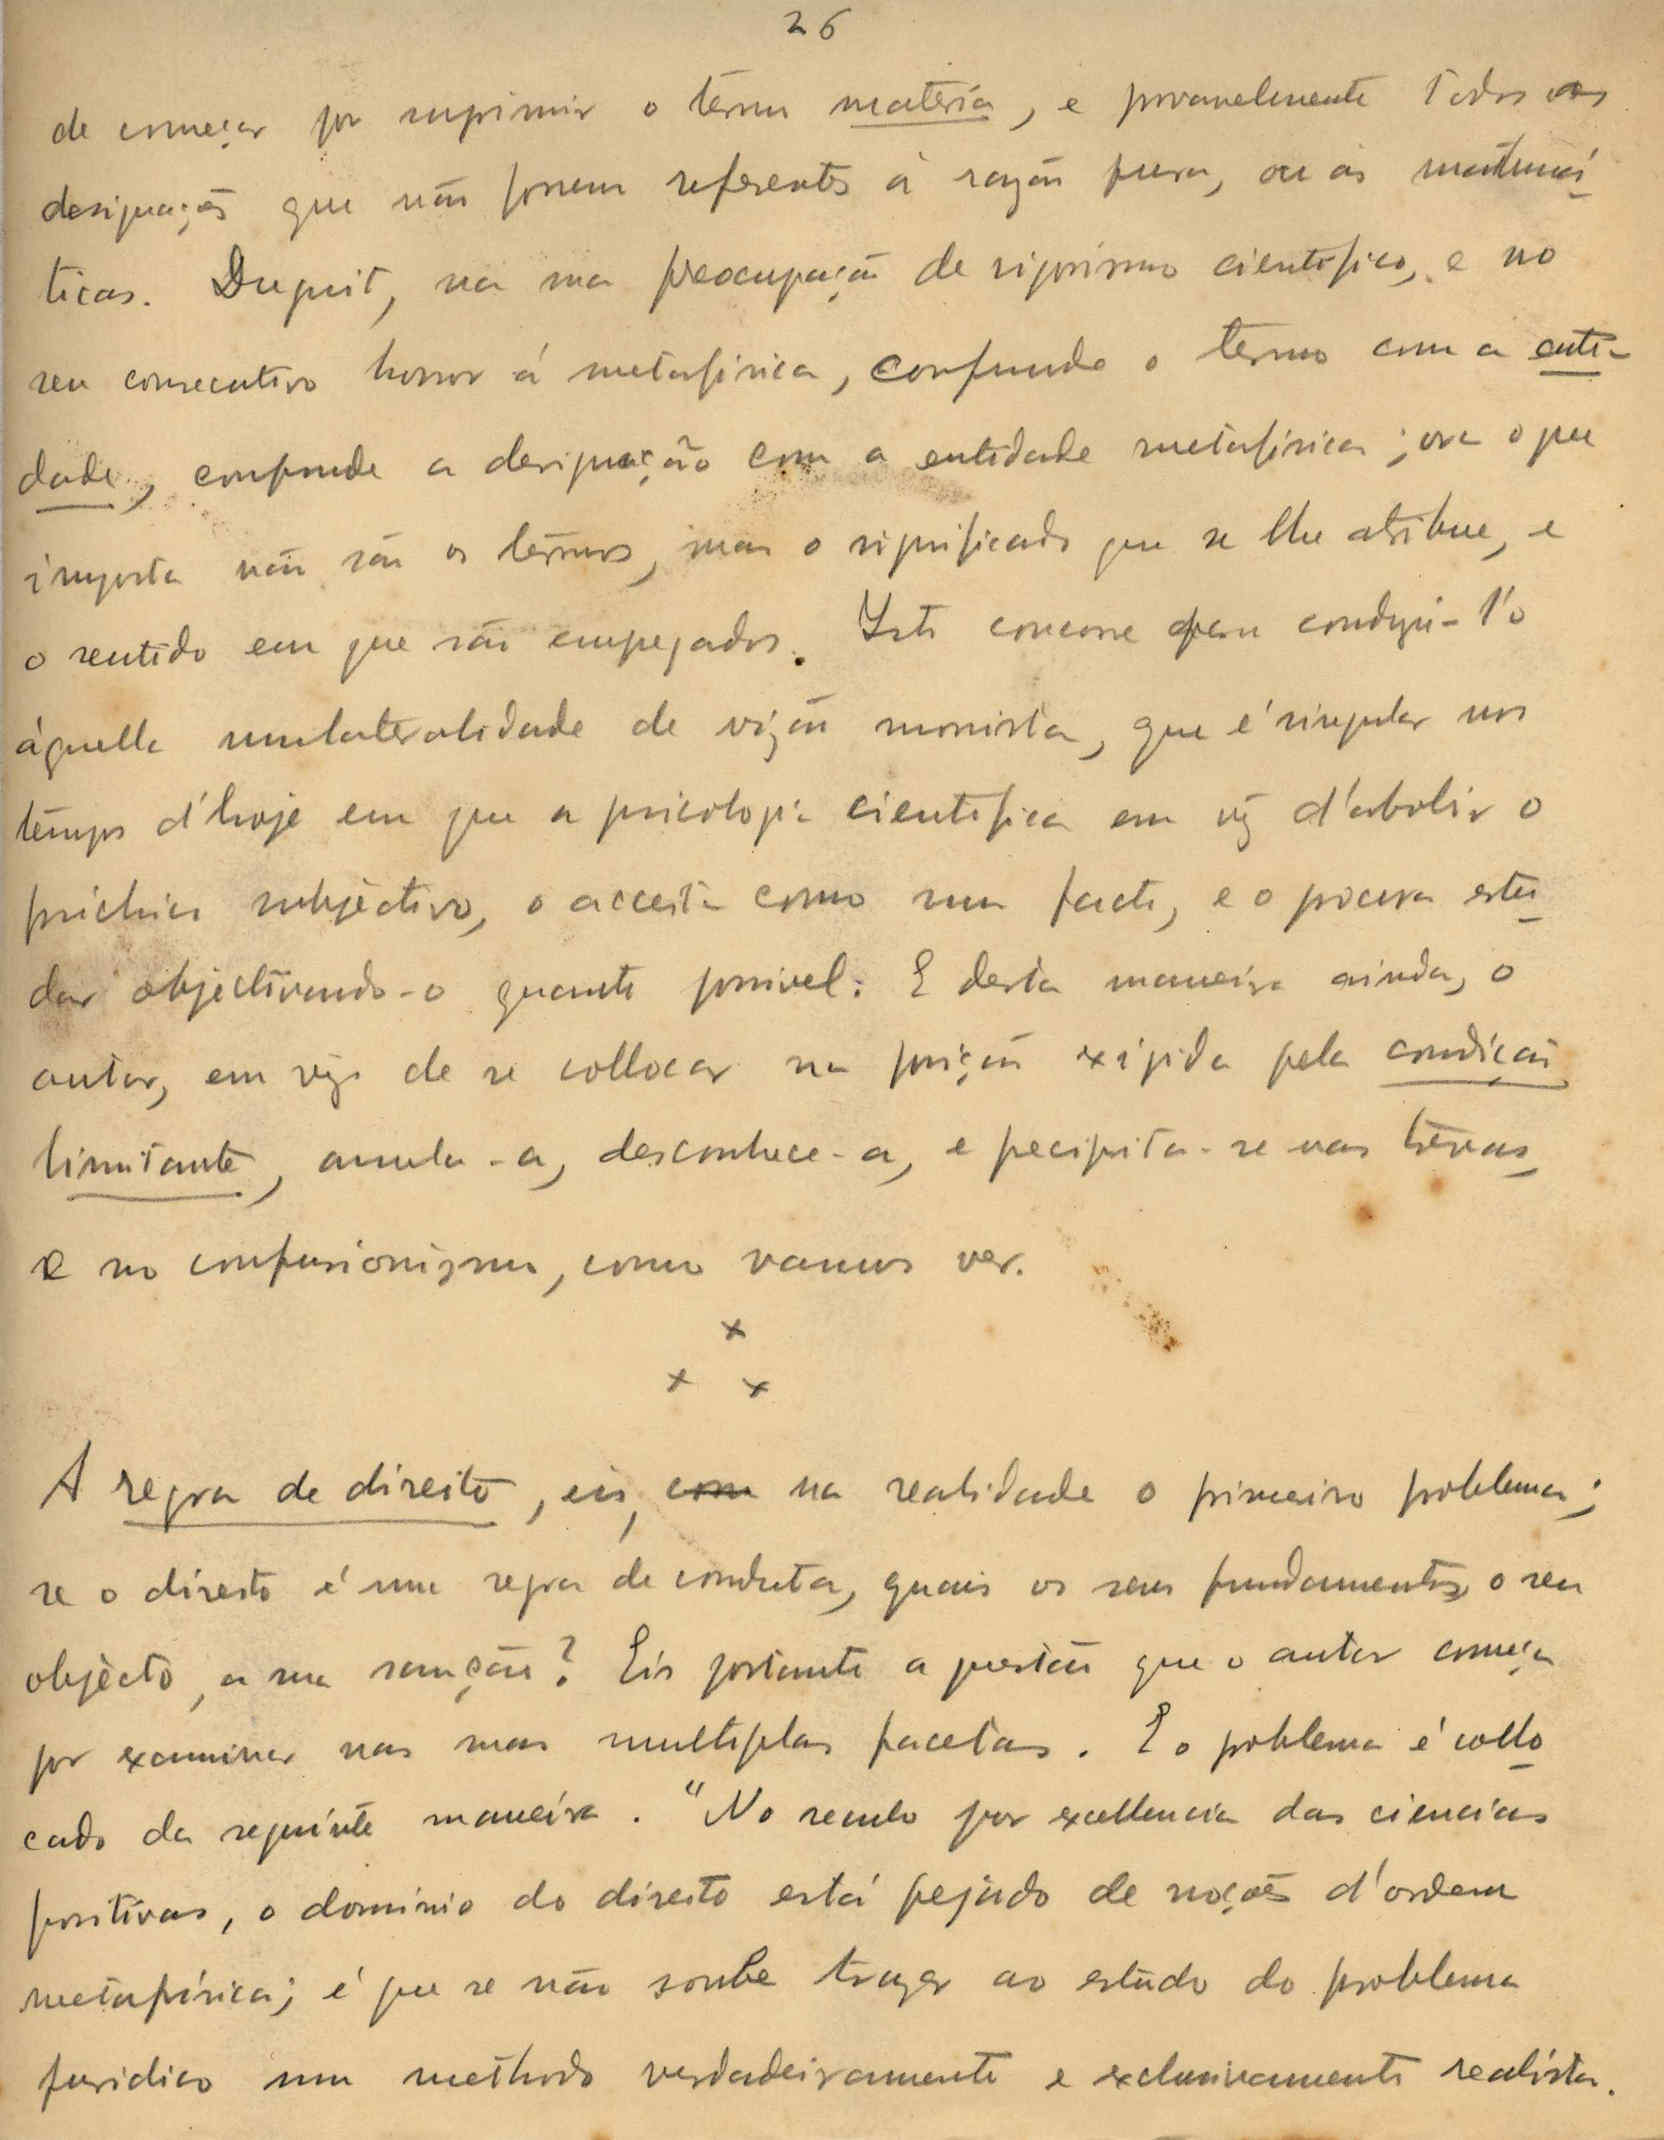 26
de começar por suprimir o termo materia, e provavelmente todos as
designações que não fossem referentes á razão pura, ou ás mathemá-
ticas. Duguit, na sua preocupação de rigorismo cientifico, e no
seu consecutivo horror á metafisica, confunde o termo com a enti-
dade, confunde a designação com a entidade metafisica; ora o que
importa não são os termos, mas o significado que se lhe atribue, e
o sentido em que são empregados. Isto concorre para conduzi-l'o
áquella unilateralidade de vizão monista, que é singular nos
tempos d'hoje em que a psicologia cientifica em vez d'abolir o
psichico subjectivo, o acceita como um facto, e o procura estu-
dar objectivando-o quanto possivel. E desta maneira ainda, o
autor, em vez de se collocar na posição exigida pela condição
limitante, annula-a, desconhece-a, e precipita-se nas trévas,
e no confusionizmo, como vamos ver.
x
x x
A regra de direito, eis, na realidade o primeiro problema;
se o direito é uma regra de conduta, quais os seus fundamentos, o seu
objécto, a sua sanção? Eis portanto a questão que o autor começa
por examinar nas suas multiplas facetas. E o problema é collo-
cado da seguinte maneira. "No seculo por excellencia das ciencias
positivas, o dominio do direito está pejado de noções d'ordem
metafisica; é que se não soube trazer ao estudo do problema
juridico um methodo verdadeiramente e exclusivamente realista.